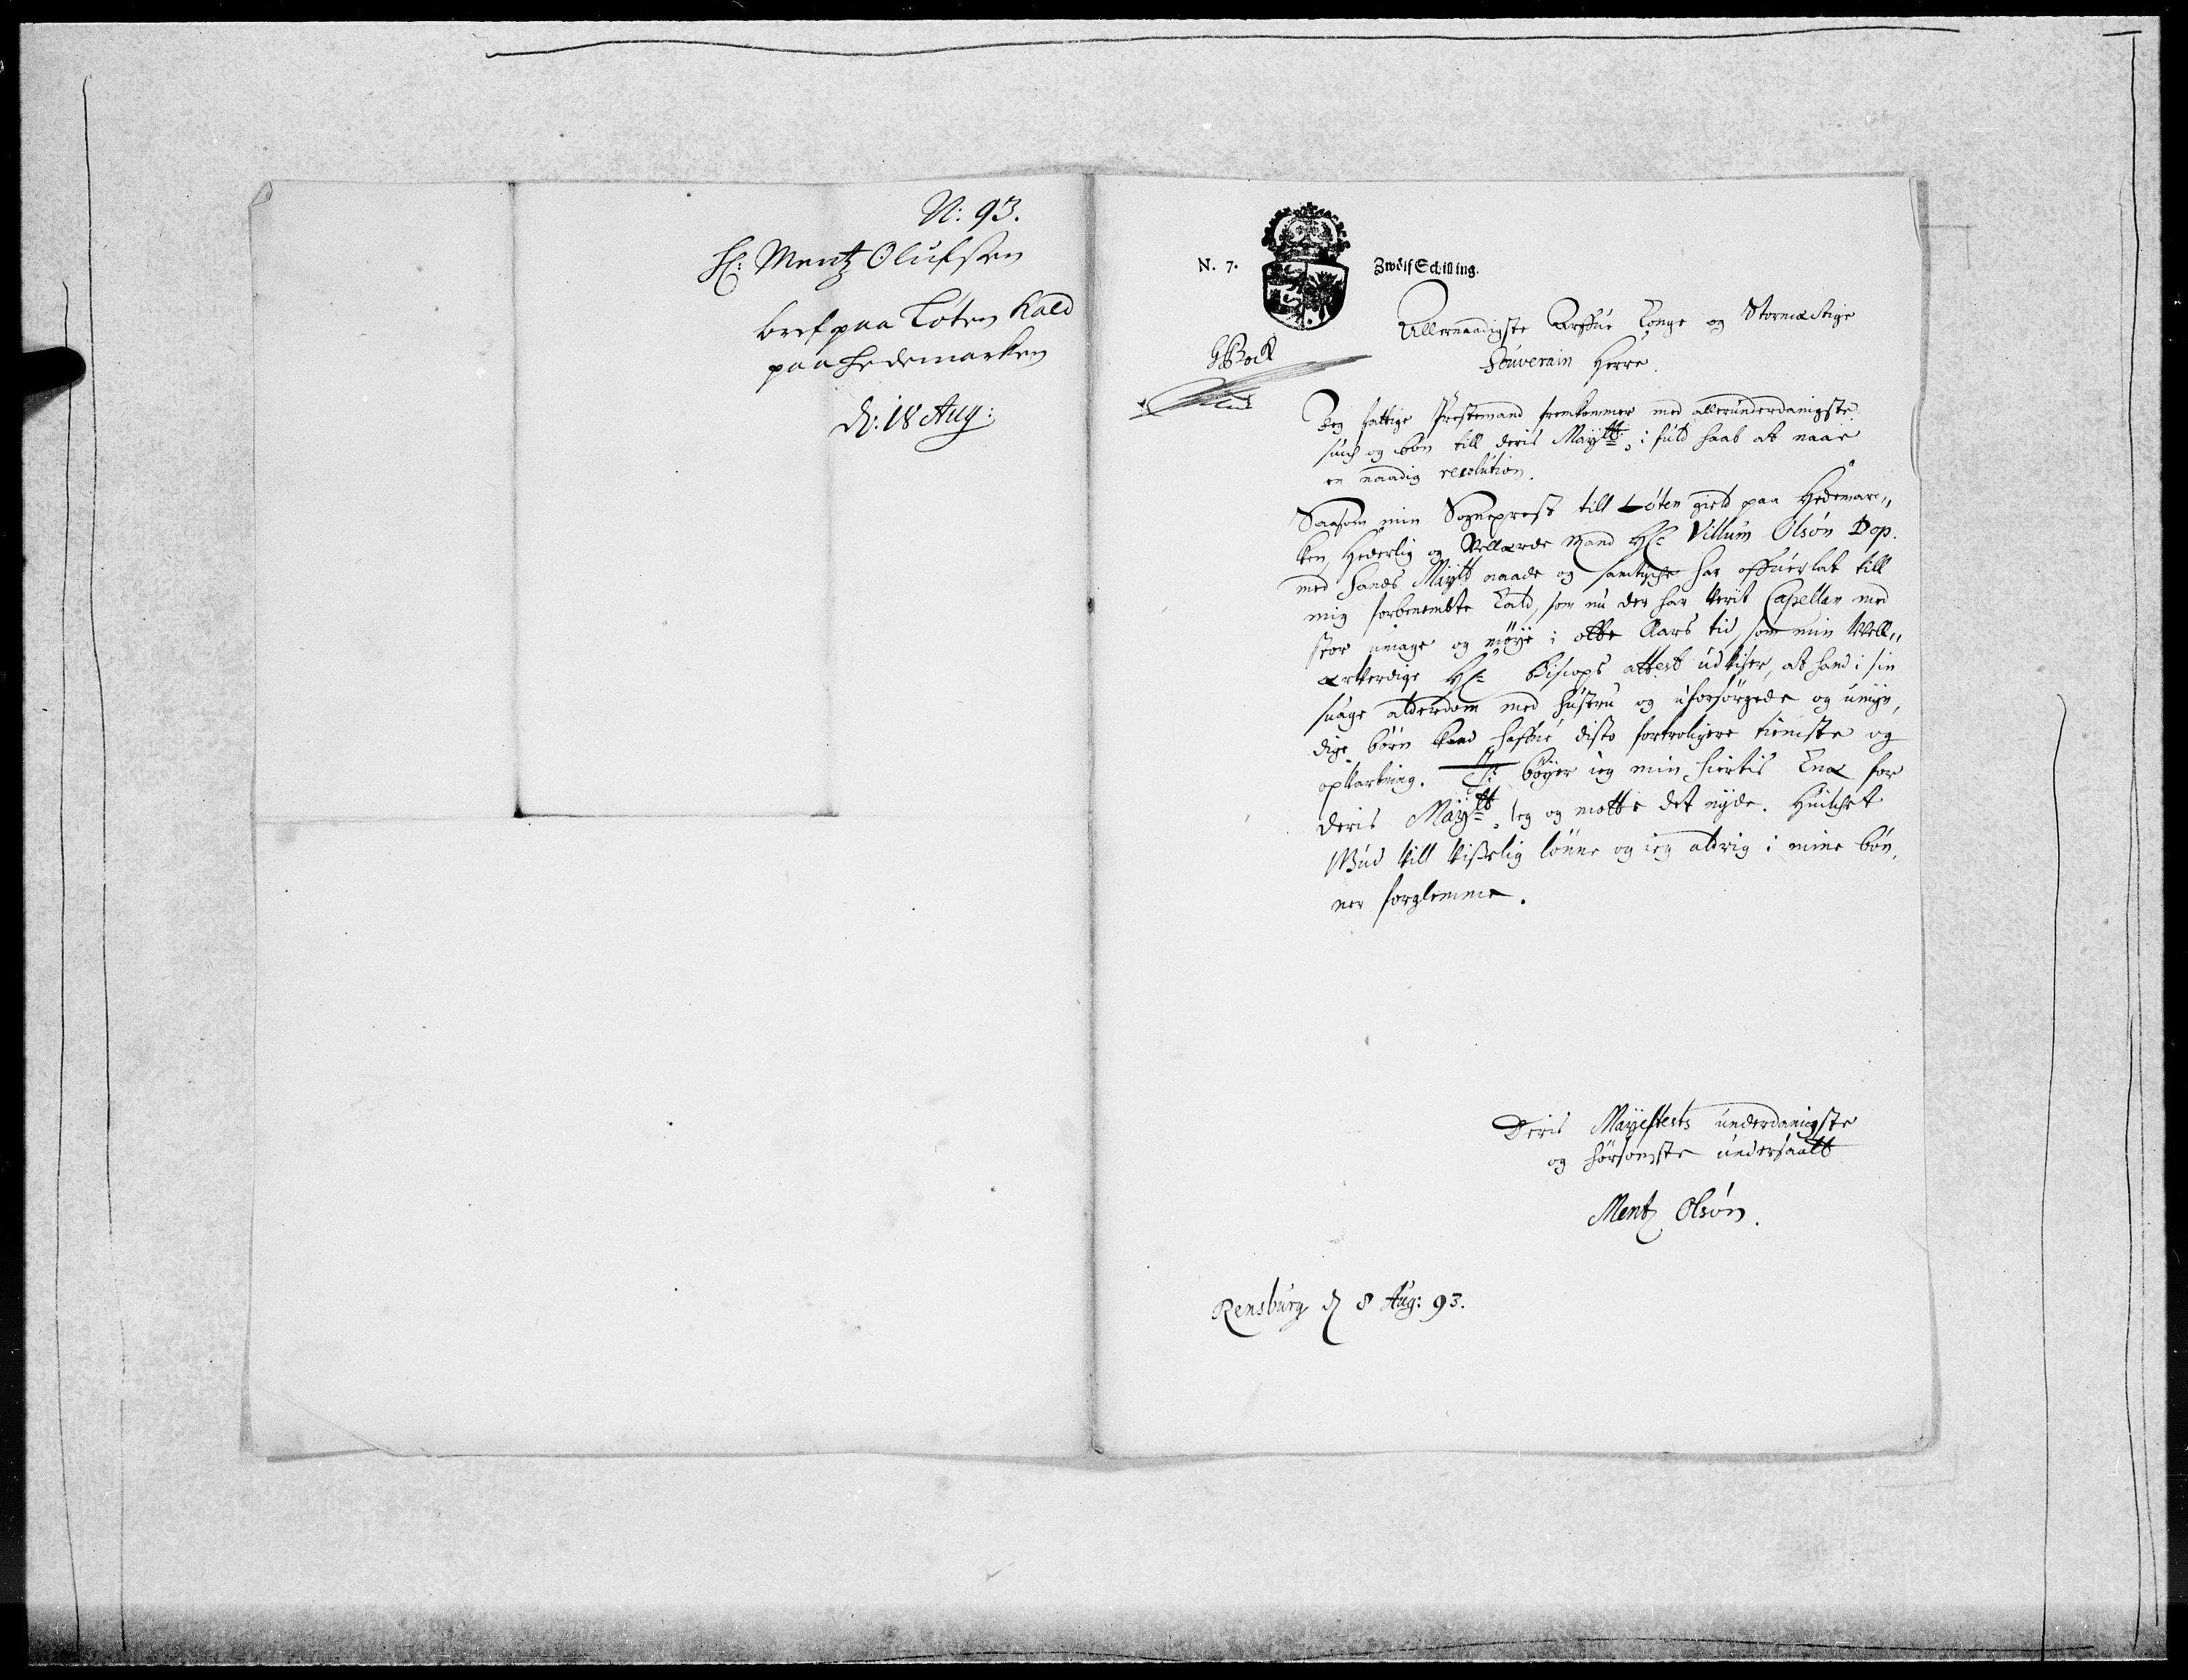 N: 93.
H: Mentz Olufsen
bref paa Løten Kald
paa Hedemarken
d: 18 Aug:
N. 7.
Zwölf Schilling.
GBock
Allernaadigste Arffue Konge og Stormectige
Souverain Herre.
Jeg fattige Prestemand fremkommer med allerunderdanigste
such og bøn till deris Maytt: i fuld haab at naae
en naadig resolution.
Saasom min Sogneprest till Løten gield paa Hedemar„
ken, Hederlig og Vellærde Mand Hr: Villum Olsøn Dop.
med hands Maytt naade og samtyche har offuerlat till
mig forbenembte Kald, som nu der har verit Capellan med
stor umage og møye i otte Aars tid, som min Vell„
ærverdige Hr: Biscops attest udviser, at hand i sin
suage alderdom med hustru og uforsørgede og umyn,
dige børn kand haffue disto fortroligere tieniste og
opvartning. Thi bøyer ieg min hiertis Knæ for
deris Maytt, ieg og motte det nyde. Huilchet
Gud vill visselig lønne og ieg aldrig i mine bøn,
ner forglemme.
Deris Mayestets underdanigste
og hørsomste undersaatt
Mentz Olsøn.
Rensburg d 8 Aug: 93.